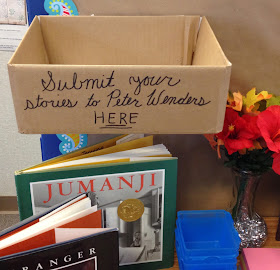 Submit your
stories to Peter Wenders
HERE
JUMANJI
RANGER